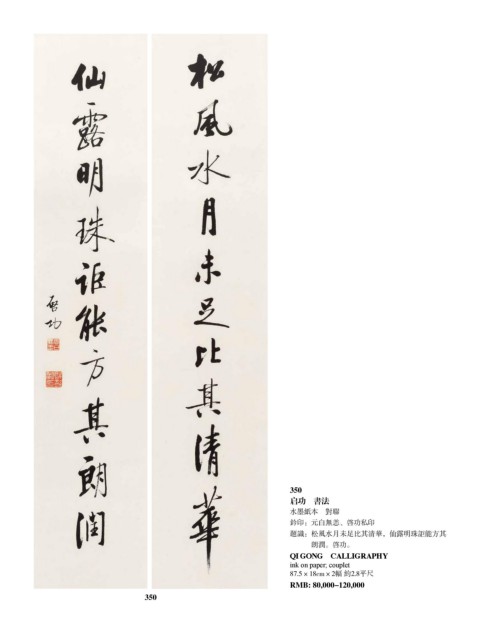 松風水月未足比其清華
仙露明珠詎能方其朗潤
啓功
350
350
启功　書法
水墨紙本　對聯
鈐印：元白無恙、啓功私印
題識：松風水月未足比其清華，仙露明珠詎能方其
朗潤。啓功。
QI GONG　CALLIGRAPHY
ink on paper; couplet
87.5 × 18cm × 2幅 約2.8平尺
RMB: 80,000–120,000